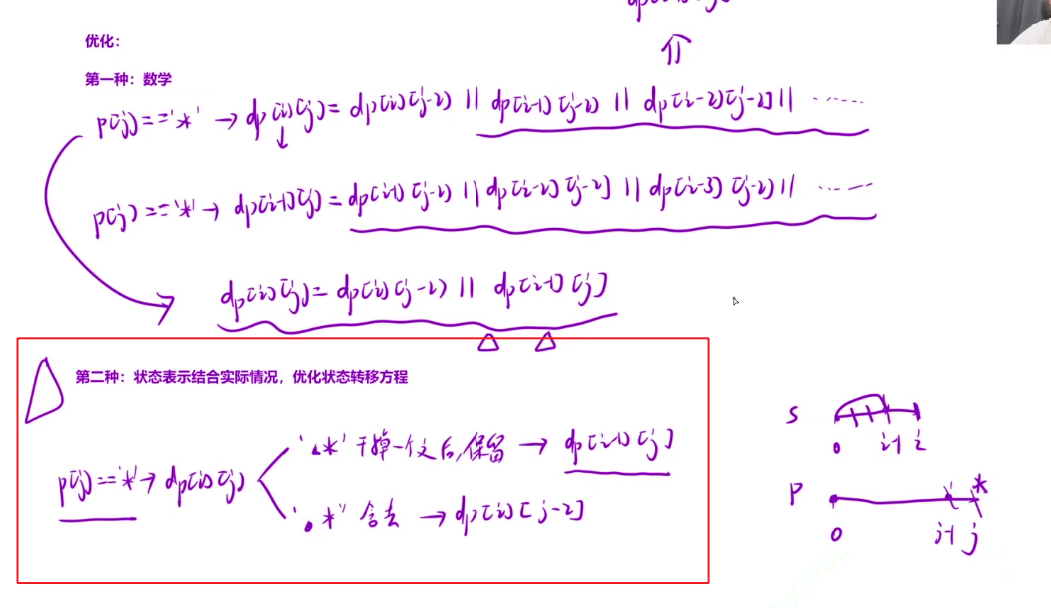 优化:
第一种：数学
p[j]=='*' → dp[i][j] = dp[i][j-2] || dp[i-1][j-2] || dp[i-2][j-2] || ......
p[j]=='*' → dp[i-1][j] = dp[i-1][j-2] || dp[i-2][j-2] || dp[i-3][j-2] || ......
dp[i][j] = dp[i][j-2] || dp[i-1][j]
第二种：状态表示结合实际情况，优化状态转移方程
'.*' 干掉一个之后,保留 → dp[i-1][j]
p[j]=='*' → dp[i][j]
'.*' 舍去 → dp[i][j-2]
s
0 i-1 i
p *
0 j-1 j